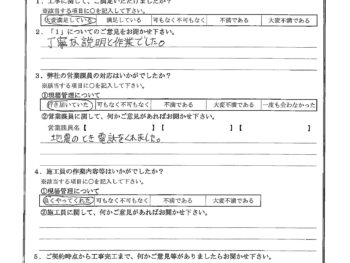 1．工事に関して、ご満足いただけましたか？
※該当する項目に○を記入して下さい。
大変満足している 満足している 可もなく不可もなく 不満である 大変不満である
2．「1」についてのご意見をお聞かせ下さい。
丁寧な説明と作業でした。
3．弊社の営業職員の対応はいかがでしたか？
※該当する項目に○を記入して下さい。
①現場管理について
行き届いていた 可もなく不可もなく 不満である 大変不満である 一度も会わなかった
②営業職員に関して、何かご意見があればお聞かせ下さい。
営業職員名【 】【 】【 】
地震のとき電話をくれました。
4．施工員の作業内容等はいかがでしたか？
※該当する項目に○を記入して下さい。
①現場管理について
良くやってくれた 可もなく不可もなく 不満である 大変不満である
②施工員に関して、何かご意見があればお聞かせ下さい。
5．ご契約時点から工事完工まで、何かご意見等がありましたらお聞かせ下さい。